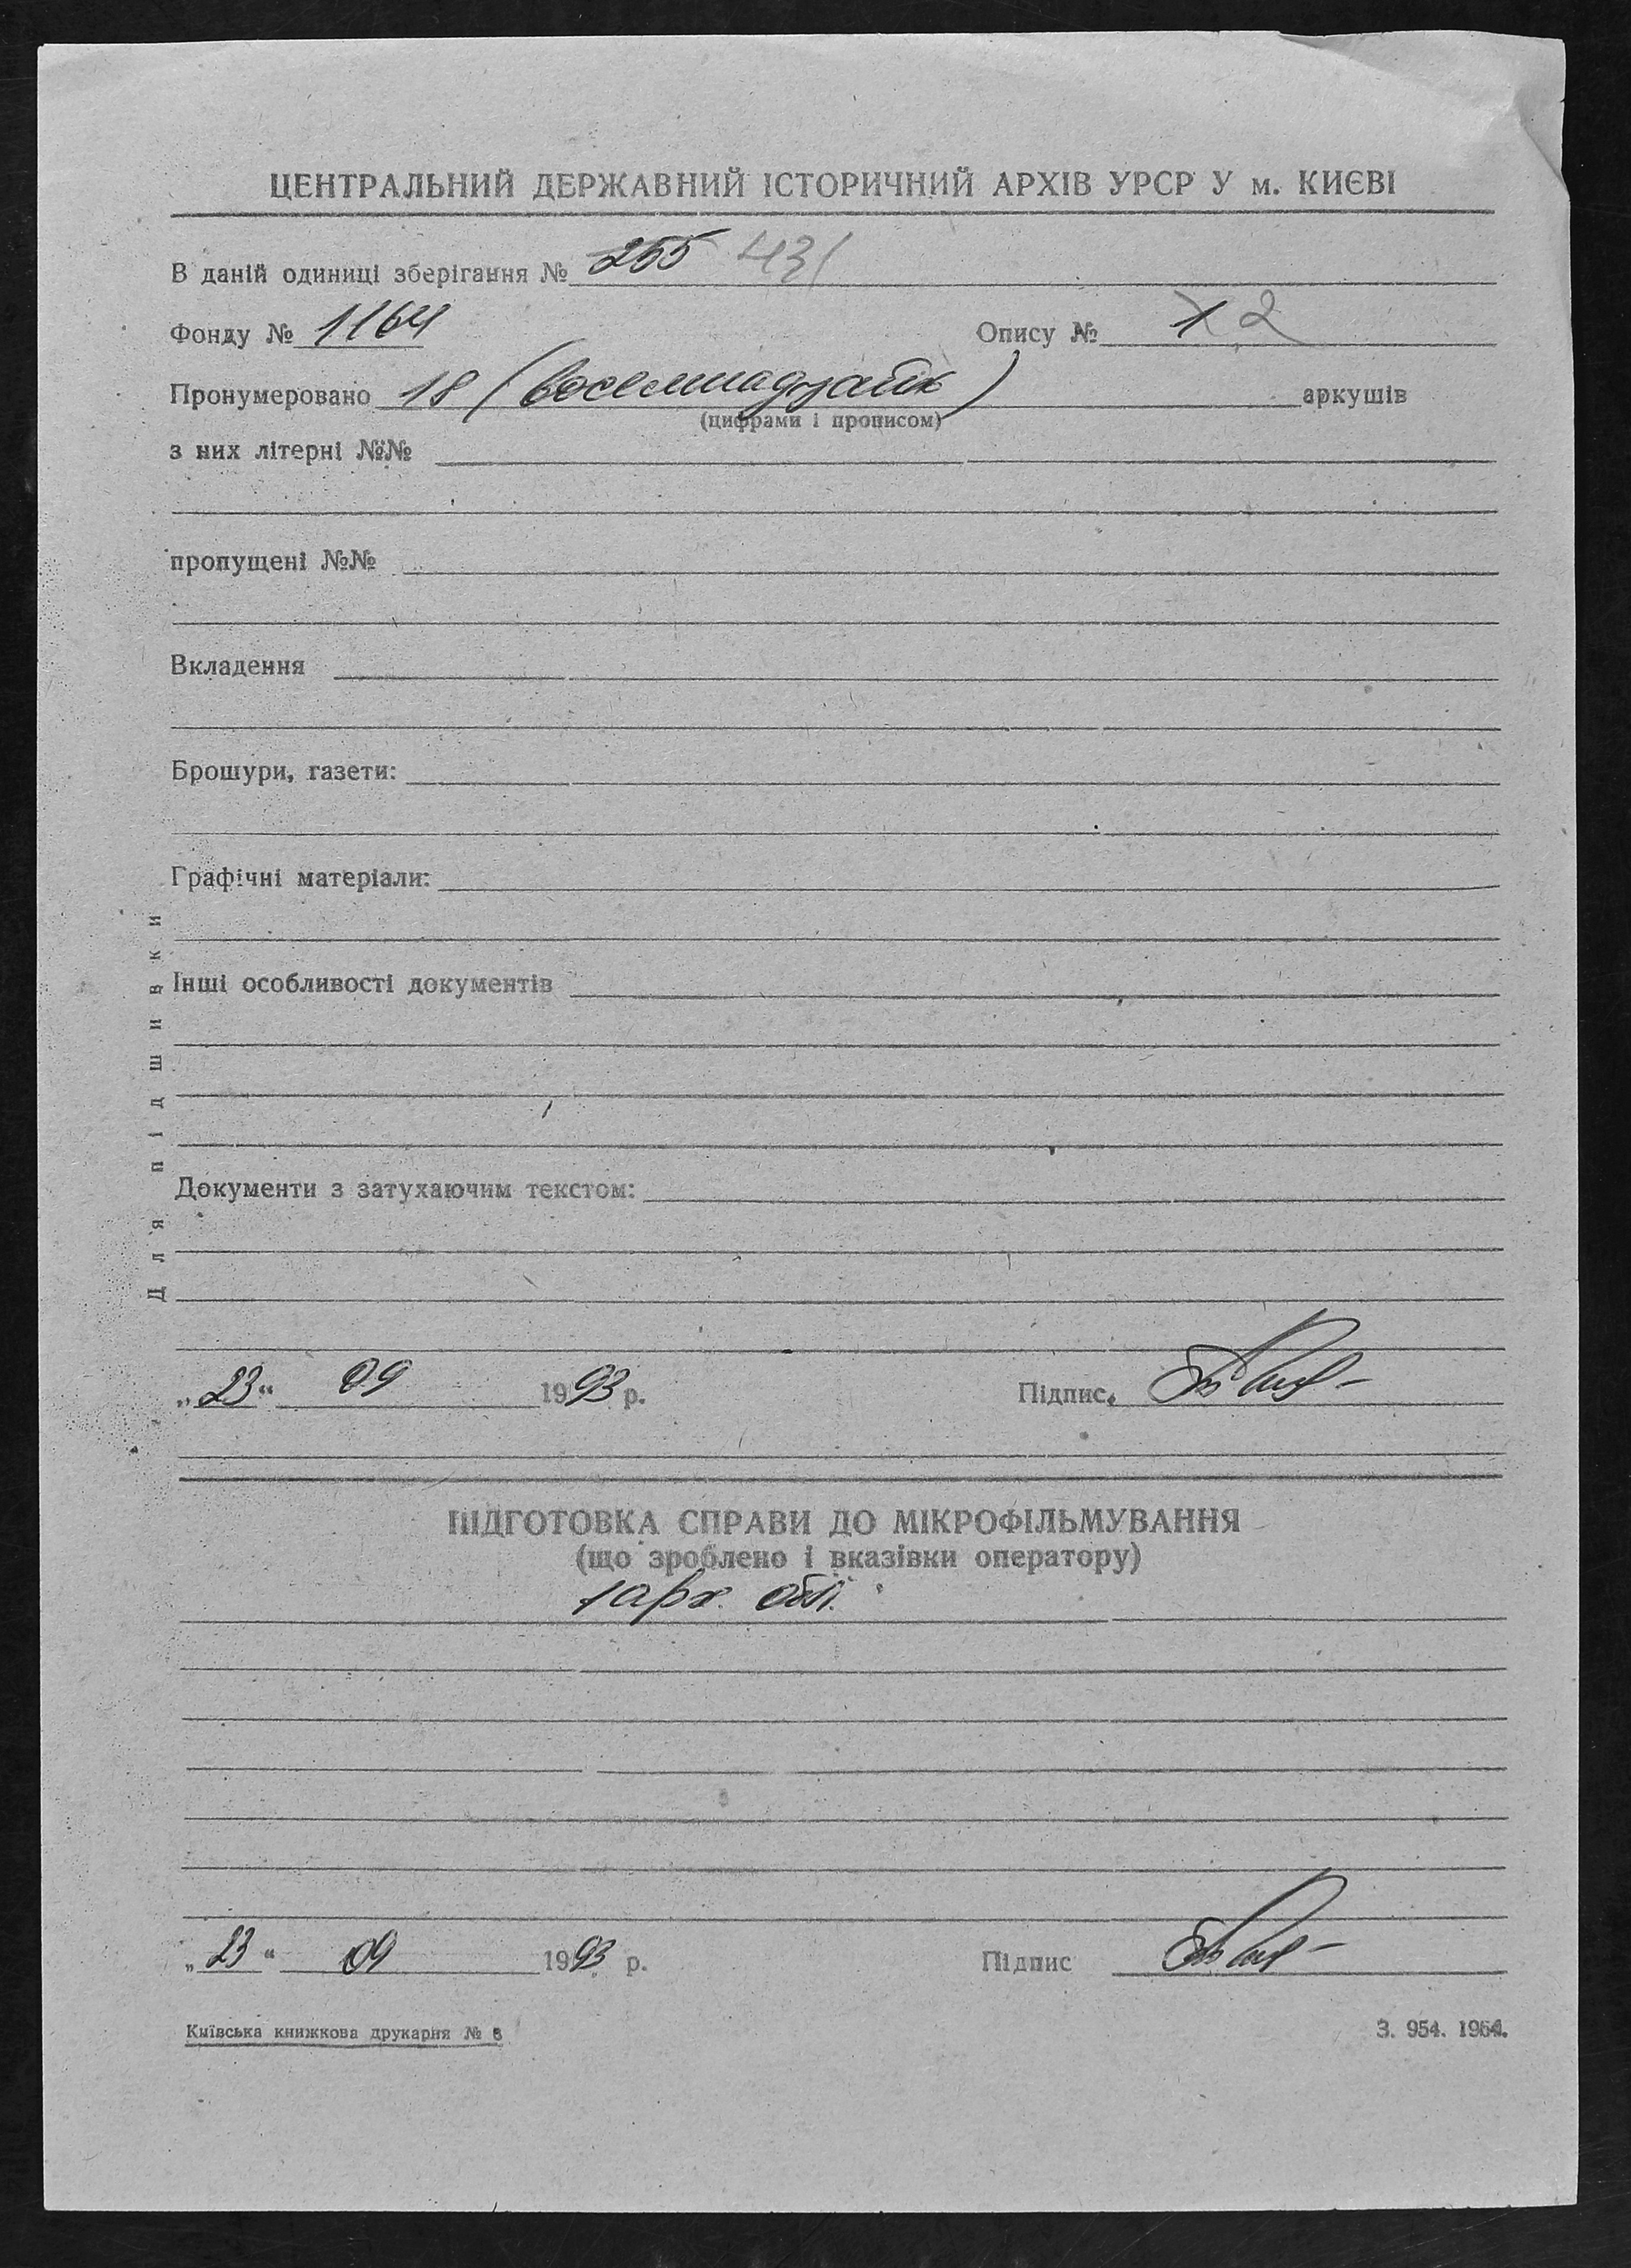 ЦЕНТРАЛЬНИЙ ДЕРЖАВНИЙ ІСТОРИЧНИЙ АРХІВ УРСР У м. КИЄВІ
В даній одиниці зберігання № 255 431
Фонду № 1164 Опису № 1 2
Пронумеровано 18 (восемнадцать) аркушів
(цифрами і прописом)
з них літерні №№
пропущені №№
Вкладення
Брошури, газети:
Графічні матеріали:
Інші особливості документів
Для підшивки
Документи з затухаючим текстом:
„23“ 09 1993 р. Підпис
ПІДГОТОВКА СПРАВИ ДО МІКРОФІЛЬМУВАННЯ
(що зроблено і вказівки оператору)
1 арх. обл.
„23“ 09 1993 р. Підпис
Київська книжкова друкарня №
З. 954. 1964.